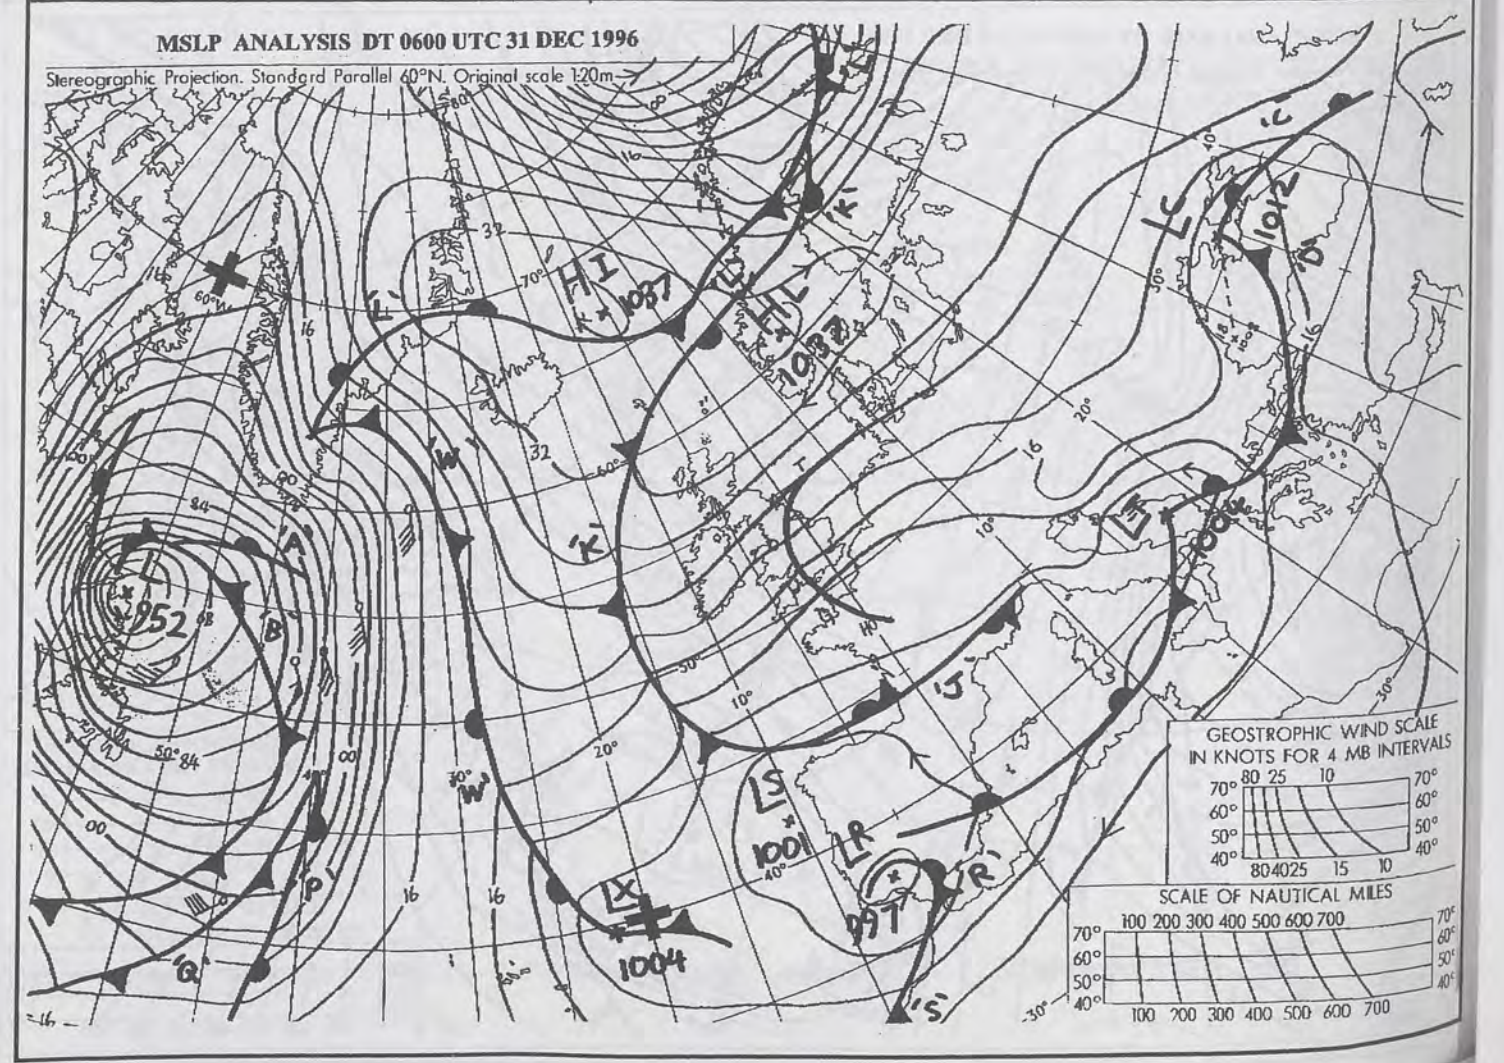 MSLP ANALYSIS DT 0600 UTC 31 DEC 1996
Stereographic Projection. Standard Parallel 60°N. Original scale 1:20m
80°
00
16
'K'
'C'
40°
LC
1012
'D'
32
70°
HI
K × 1037
LY
HL
1037
30°
16
60°W
16
'L'
16
1008
20°
'W'
32
60°
T
16
00
84
'A'
'K'
10°
LT
1004
L
952
68
'B'
HO
50°
'J'
30°
10°
50° 84
00
20°
30°
'W'
LS
1001
40°
LR
997
'R'
00
'P'
16
16
LX
1004
'Q'
'S'
-16-
-30°
GEOSTROPHIC WIND SCALE
IN KNOTS FOR 4 MB INTERVALS
80 25 10
70° 70°
60° 60°
50° 50°
40° 40°
80 40 25 15 10
SCALE OF NAUTICAL MILES
100 200 300 400 500 600 700
70° 70°
60° 60°
50° 50°
40° 40°
100 200 300 400 500 600 700